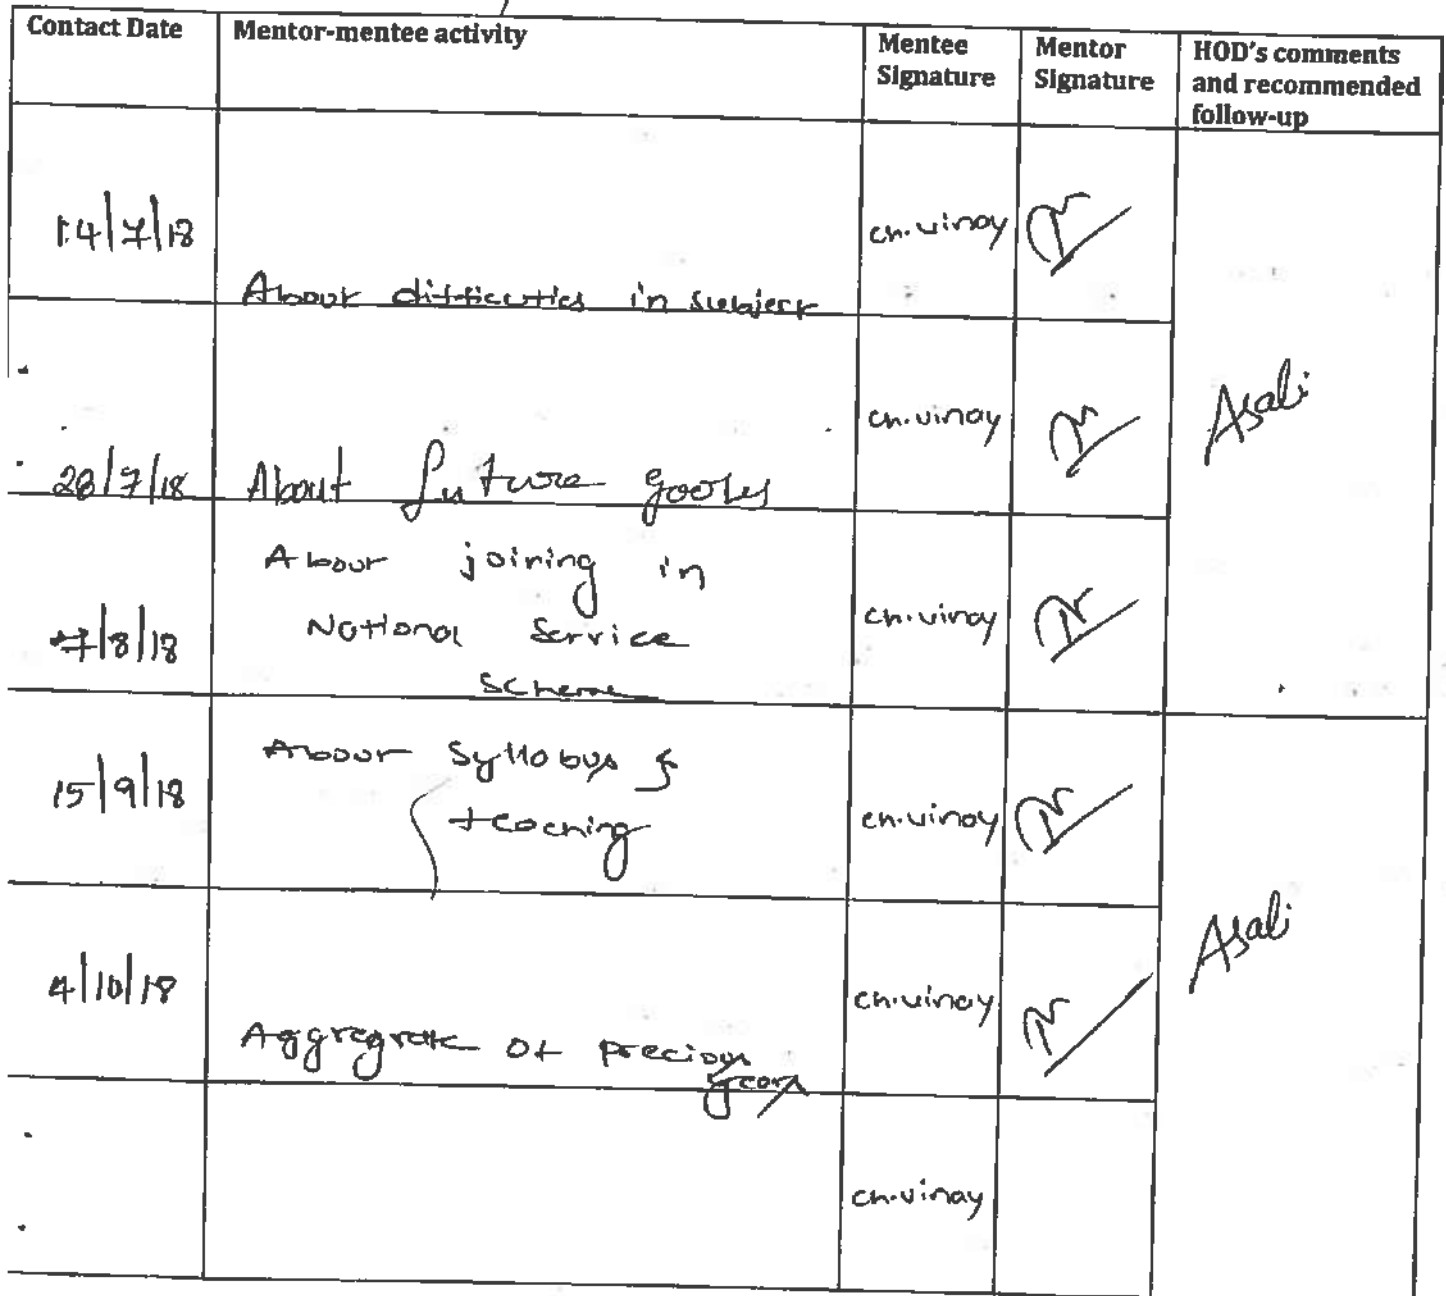 Contact Date Mentor-mentee activity Mentee Signature Mentor Signature HOD's comments and recommended follow-up
14/7/18 About difficulties in subject ch.vinay
28/7/18 About future goals ch.vinay Asali
7/8/18 About joining in
National Service
Scheme ch.vinay
15/9/18 About Syllabus &
teaching ch.vinay
4/10/18 Aggregrate of precious
years ch.vinay Asali
ch.vinay